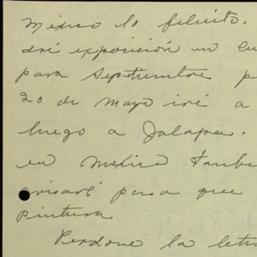 México lo felicito.
dré exposición en Cu
para Septiembre p
20 de Mayo iré a
luego a Jalapa.
en México tambi
avisaré para que
pintura
Perdone la letra